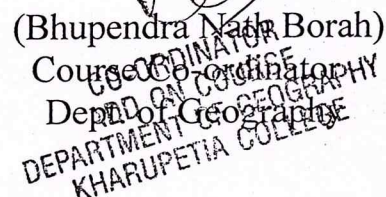 (Bhupendra Nath Borah)
Course Co-ordinator
Deptt. of Geography
CO-ORDINATOR
ADD ON COURSE
DEPARTMENT OF GEOGRAPHY
KHARUPETIA COLLEGE